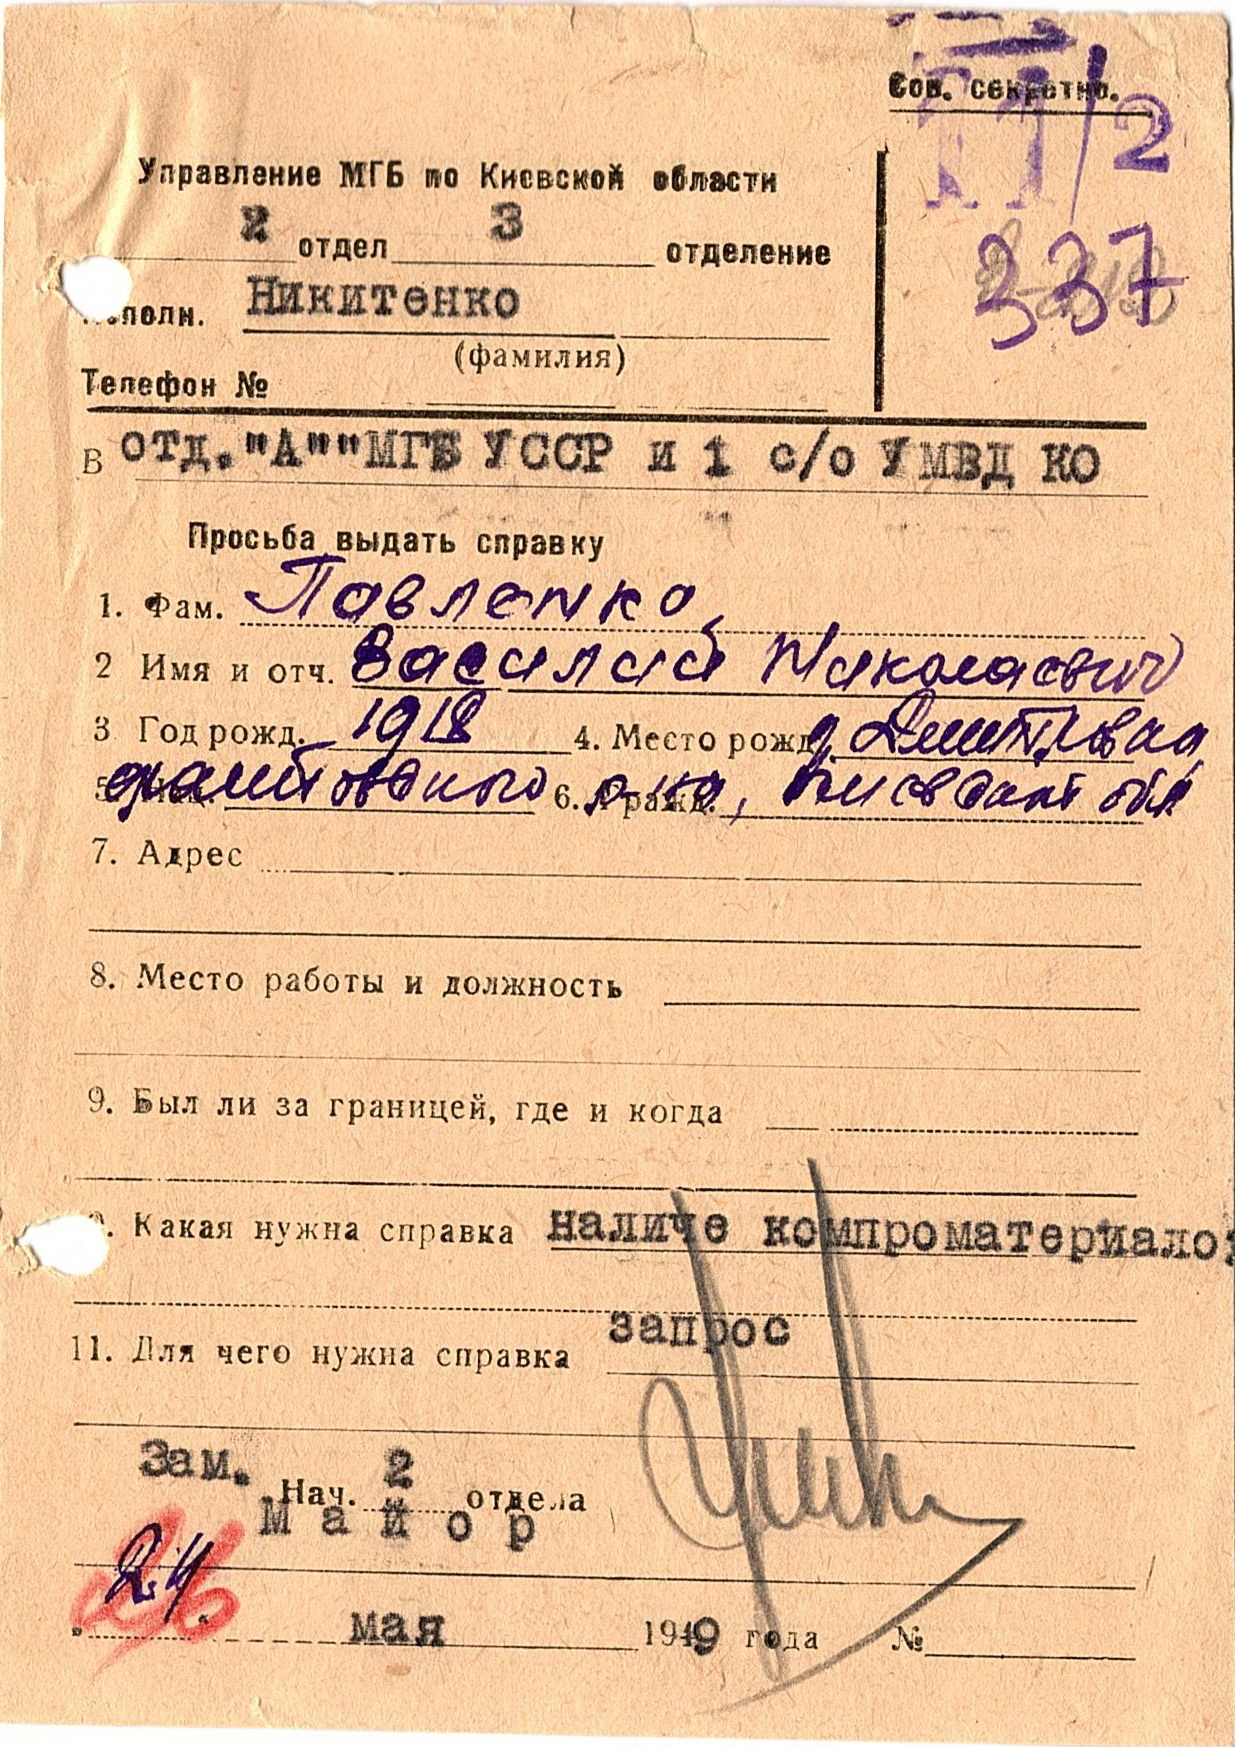 Сов. секретно.
11/2
Управление МГБ по Киевской области
2 отдел 3 отделение
337
Исполн. Никитенко
(фамилия)
Телефон №
В отд."А""МГБ УССР и 1 с/о УМВД КО
Просьба выдать справку
1. Фам. Павленко
2 Имя и отч. Василий Николаевич
3 Год рожд. 1918 4. Место рожд. д. Дмитровка,
5. 6. Гражд. р-на, Киевской обл
7. Адрес
8. Место работы и должность
9. Был ли за границей, где и когда
10. Какая нужна справка наличе компроматериало
запрос
11. Для чего нужна справка
Зам. Нач. 2 отдела
Майор
26
„ “ мая 1949 года №